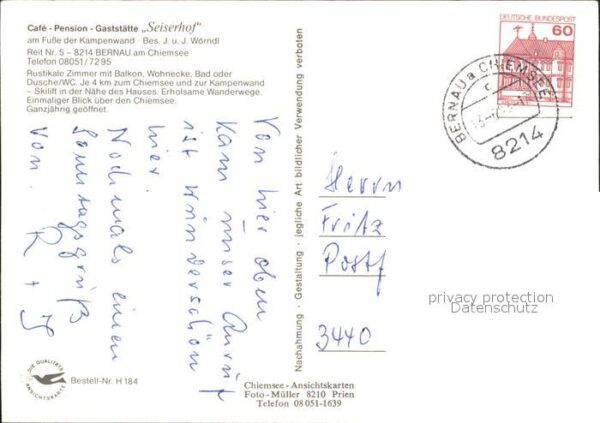 Café - Pension - Gaststätte „Seiserhof"
am Fuße der Kampenwand · Bes. J. u. J. Wörndl
Reit Nr. 5 – 8214 BERNAU am Chiemsee
Telefon 08051/7295
Rustikale Zimmer mit Balkon, Wohnecke, Bad oder
Dusche/WC. Je 4 km zum Chiemsee und zur Kampenwand
– Skilift in der Nähe des Hauses. Erholsame Wanderwege.
Einmaliger Blick über den Chiemsee.
Ganzjährig geöffnet.
Von hier oben
kam unser Anruf
ist wunderschön
hier.
Nochmals einen
Sonntagsgruß
Von. R + J
DIE QUALITÄTS
ANSICHTSKARTE
Bestell-Nr. H 184
Nachahmung · Gestaltung · jegliche Art bildlicher Verwendung verboten
Chiemsee-Ansichtskarten
Foto-Müller 8210 Prien
Telefon 08051-1639
DEUTSCHE BUNDESPOST
60
BERNAU a CHIEMSEE
c
8214
Herrn
Fritz
Postf
3440
privacy protection
Datenschutz